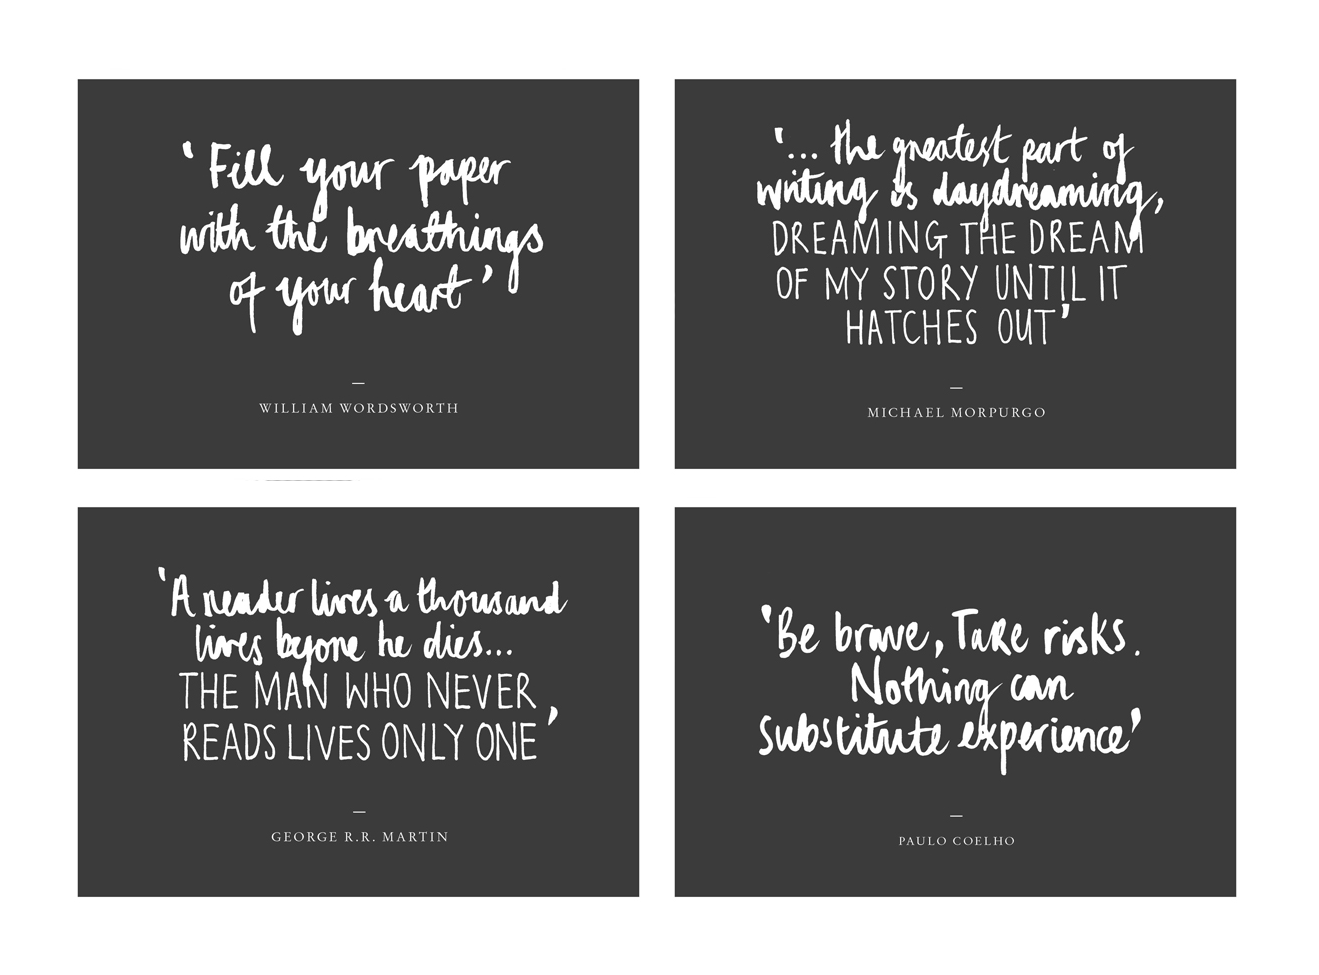 ‘Fill your paper
with the breathings
of your heart’
—
WILLIAM WORDSWORTH
‘... the greatest part of
writing is daydreaming,
DREAMING THE DREAM
OF MY STORY UNTIL IT
HATCHES OUT’
—
MICHAEL MORPURGO
‘A reader lives a thousand
lives before he dies...
THE MAN WHO NEVER
READS LIVES ONLY ONE’
—
GEORGE R.R. MARTIN
‘Be brave, Take risks.
Nothing can
substitute experience’
—
PAULO COELHO